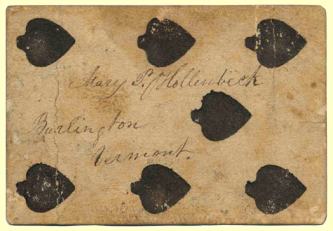 Mary P. Hollenbeck
Burlington
Vermont.